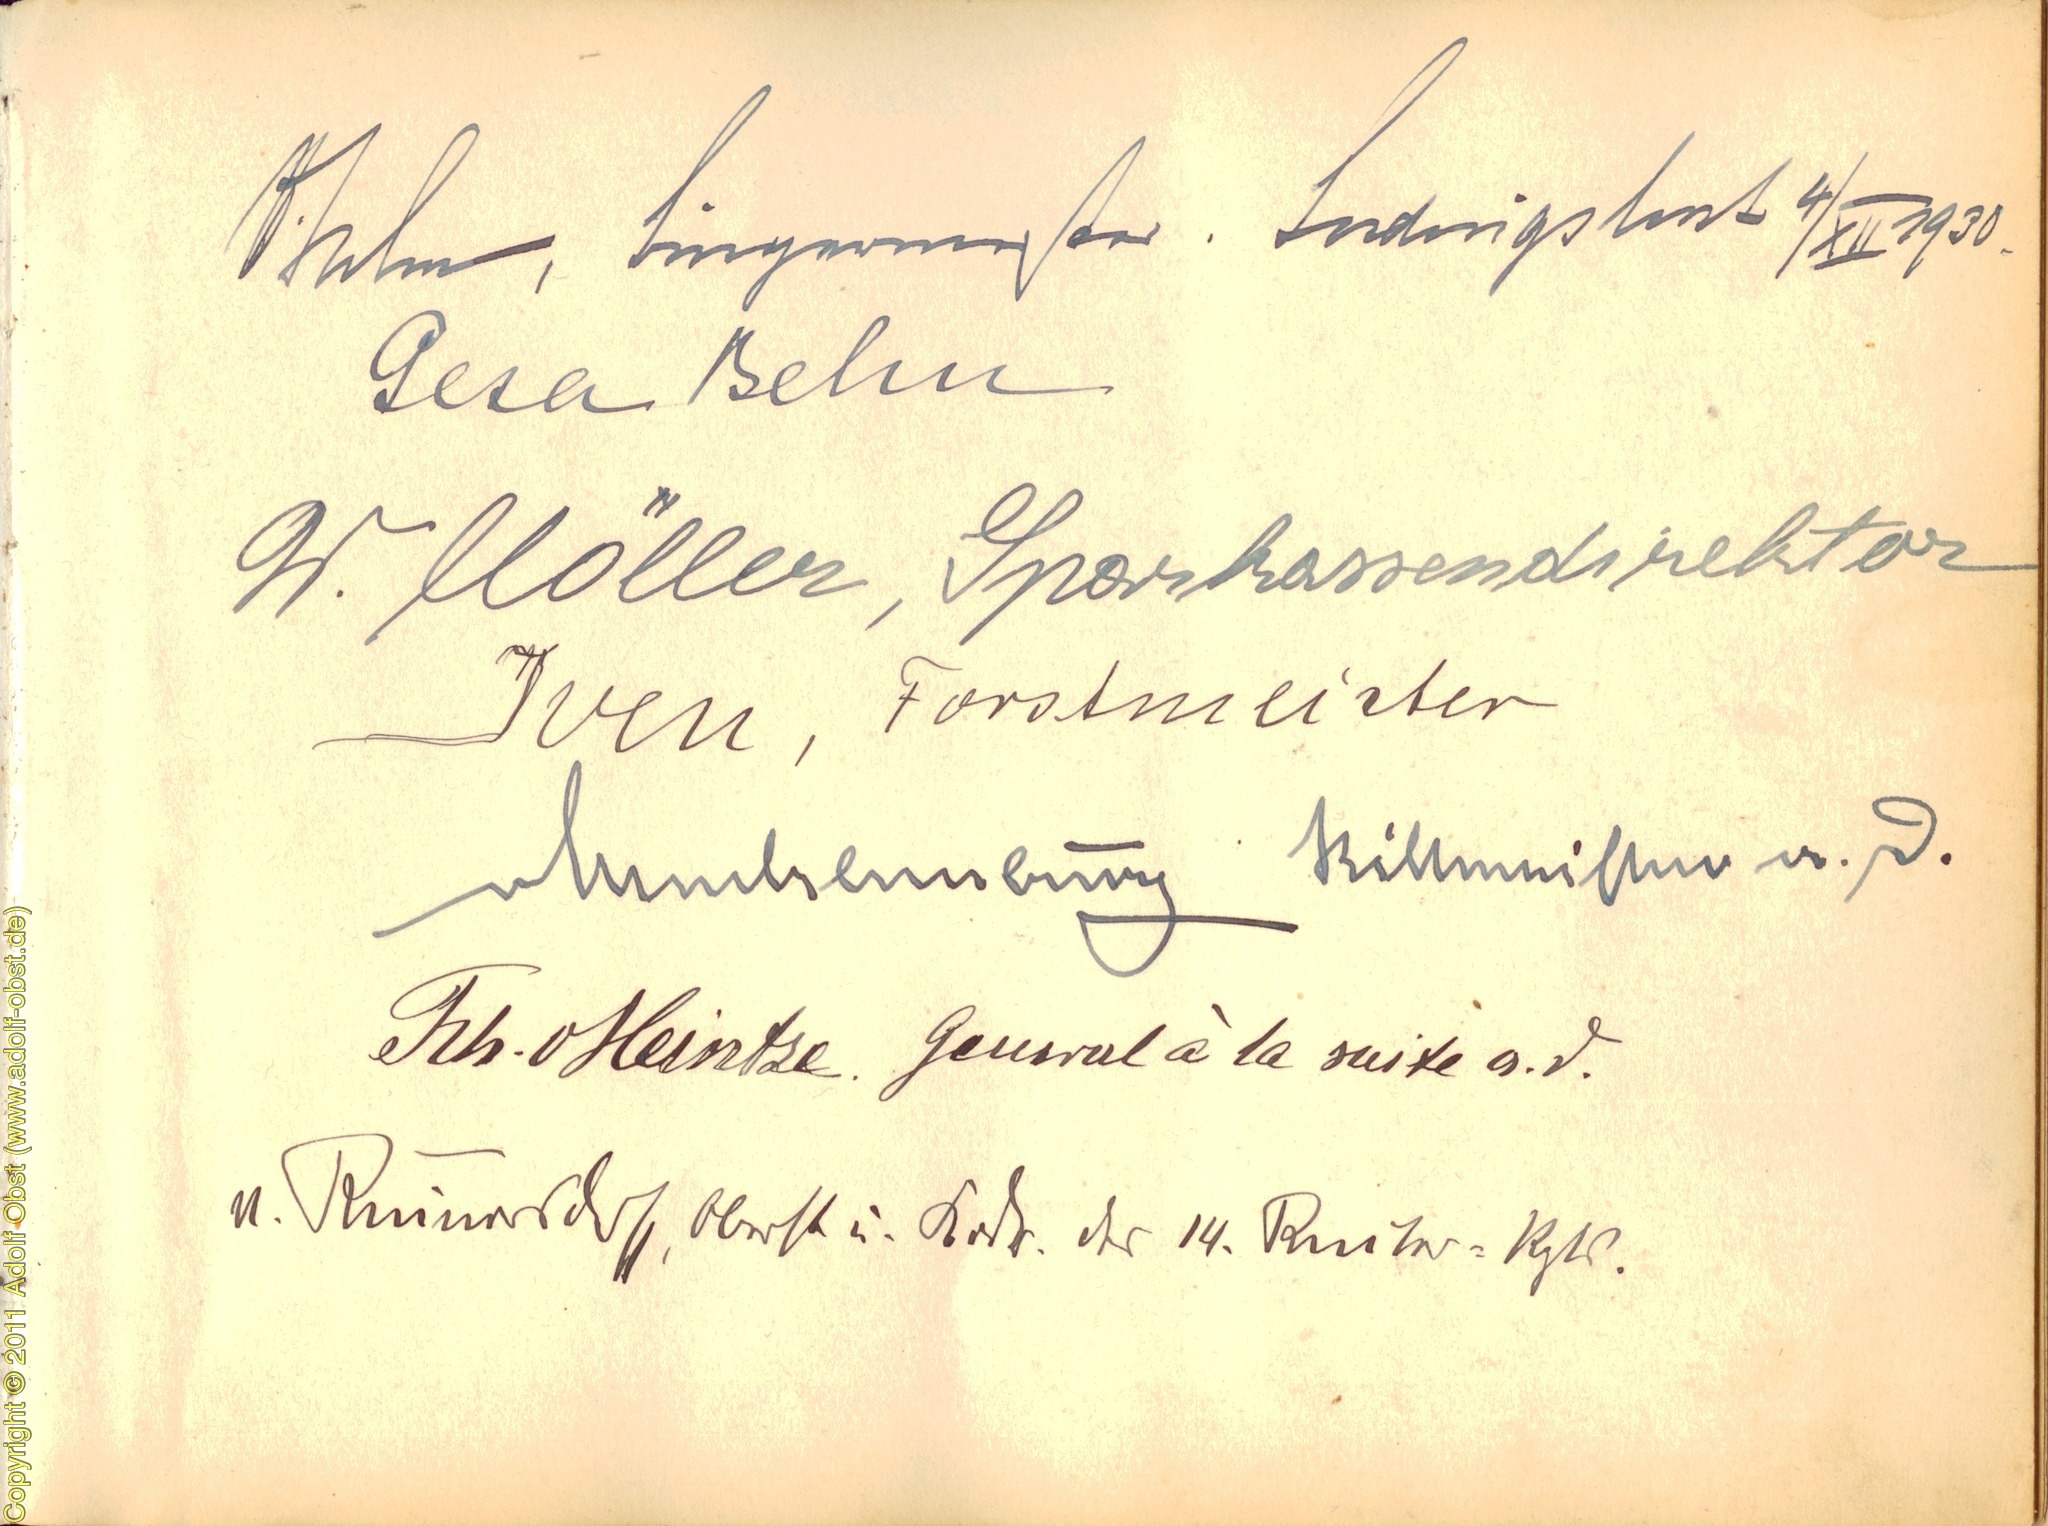 Behm, Bürgermeister. Ludwigslust 4/XII 1930.
Gesa Behm
W. Möller, Sparkassendirektor
Iven, Forstmeister
Rittmeister a. D.
Frh. v Heintze. General à la suite a. D.
v. Oberst u. Kdr. des 14. Reiter-Rgts.
Copyright © 2011 Adolf Obst (www.adolf-obst.de)